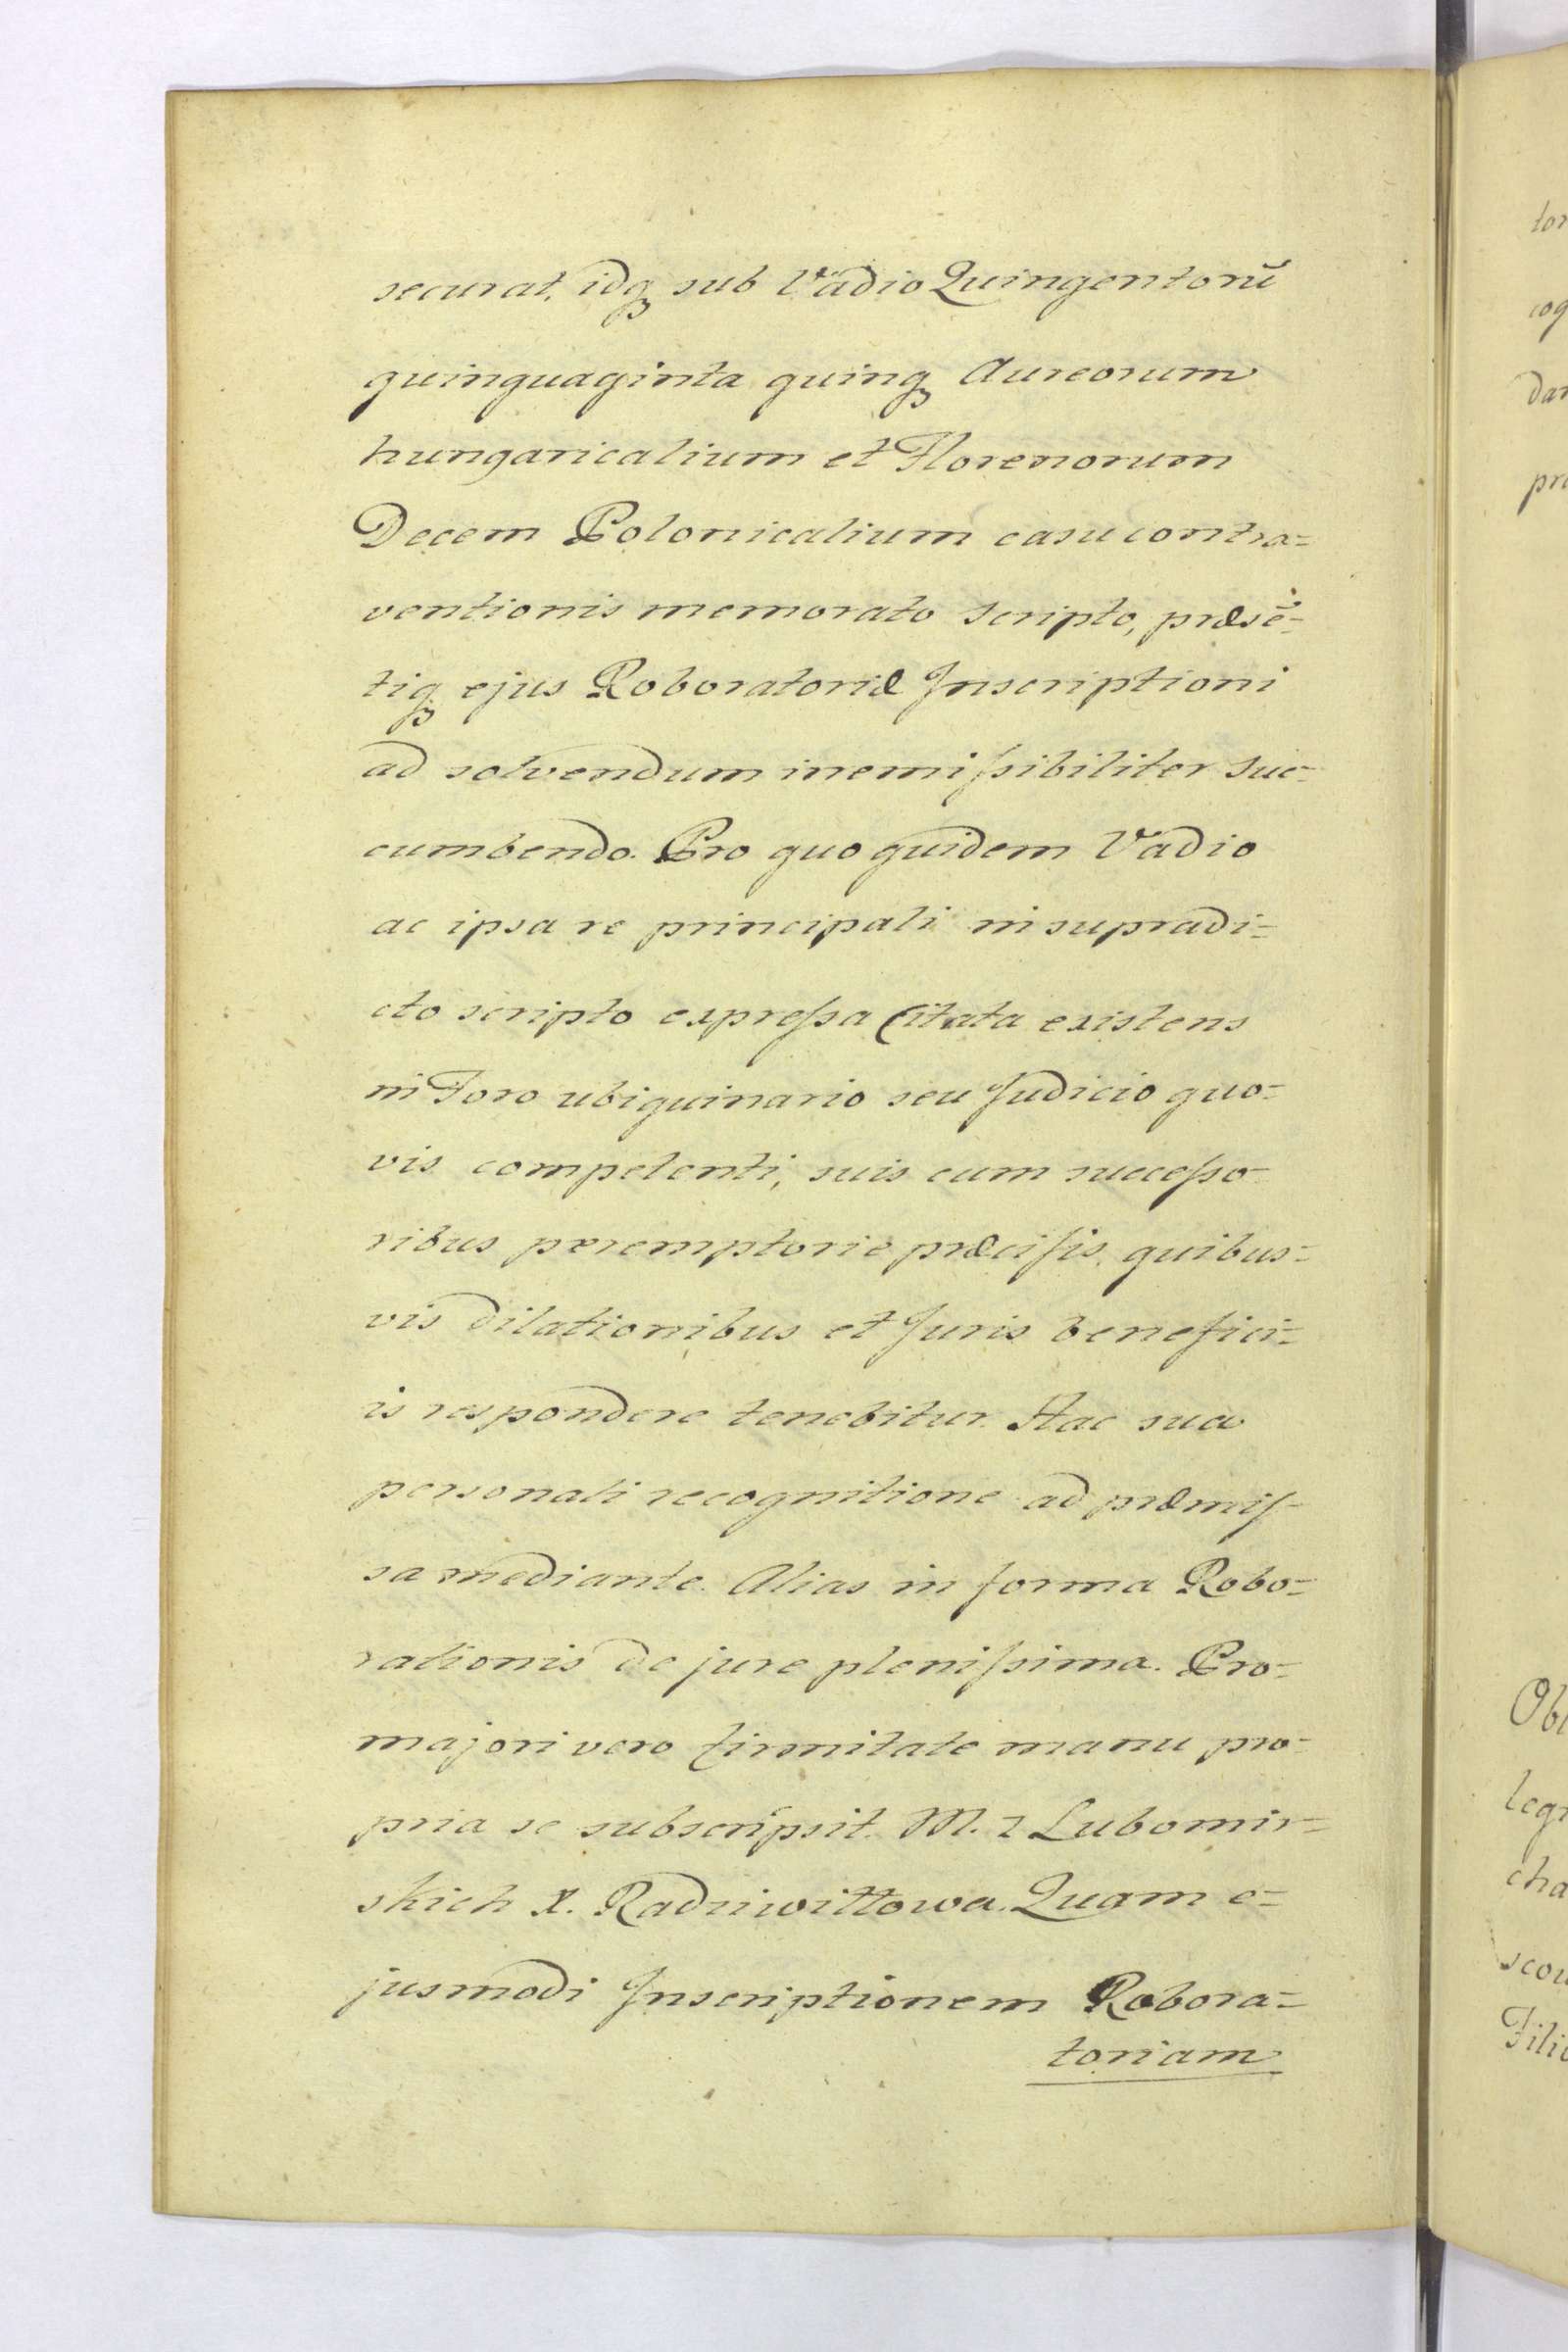 securat, idq₃ sub Vadio Quingentorū
quinquaginta quinq₃ Aureorum
hungaricalium et Florenorum
Decem Polonicalium casu contra=
ventionis memorato scripto, præsē=
tiq₃ ejus Roboratoriæ Inscriptioni
ad solvendum inemiſsibiliter suc=
cumbendo. Pro quo quidem Vadio
ac ipsa re principali in supradi=
cto scripto expreſsa Citata existens
in Foro ubiquinario seu Judicio quo=
vis competenti, suis cum succeſso=
ribus peremptorie præciſis, quibus=
vis dilationibus et Juris benefici=
is respondere tenebitur. Hac sua
personali recognitione ad præmiſ=
sa mediante. Alias in forma Robo=
rationis de jure pleniſsima. Pro=
majori vero firmitate manu pro=
pria se subscripsit. M. z Lubomir=
skich X. Radziwiłłowa. Quam e=
jusmodi Inscriptionem Robora=
toriam
tor
cog
dar
pro
Obl
legi
cha
scou
Filio